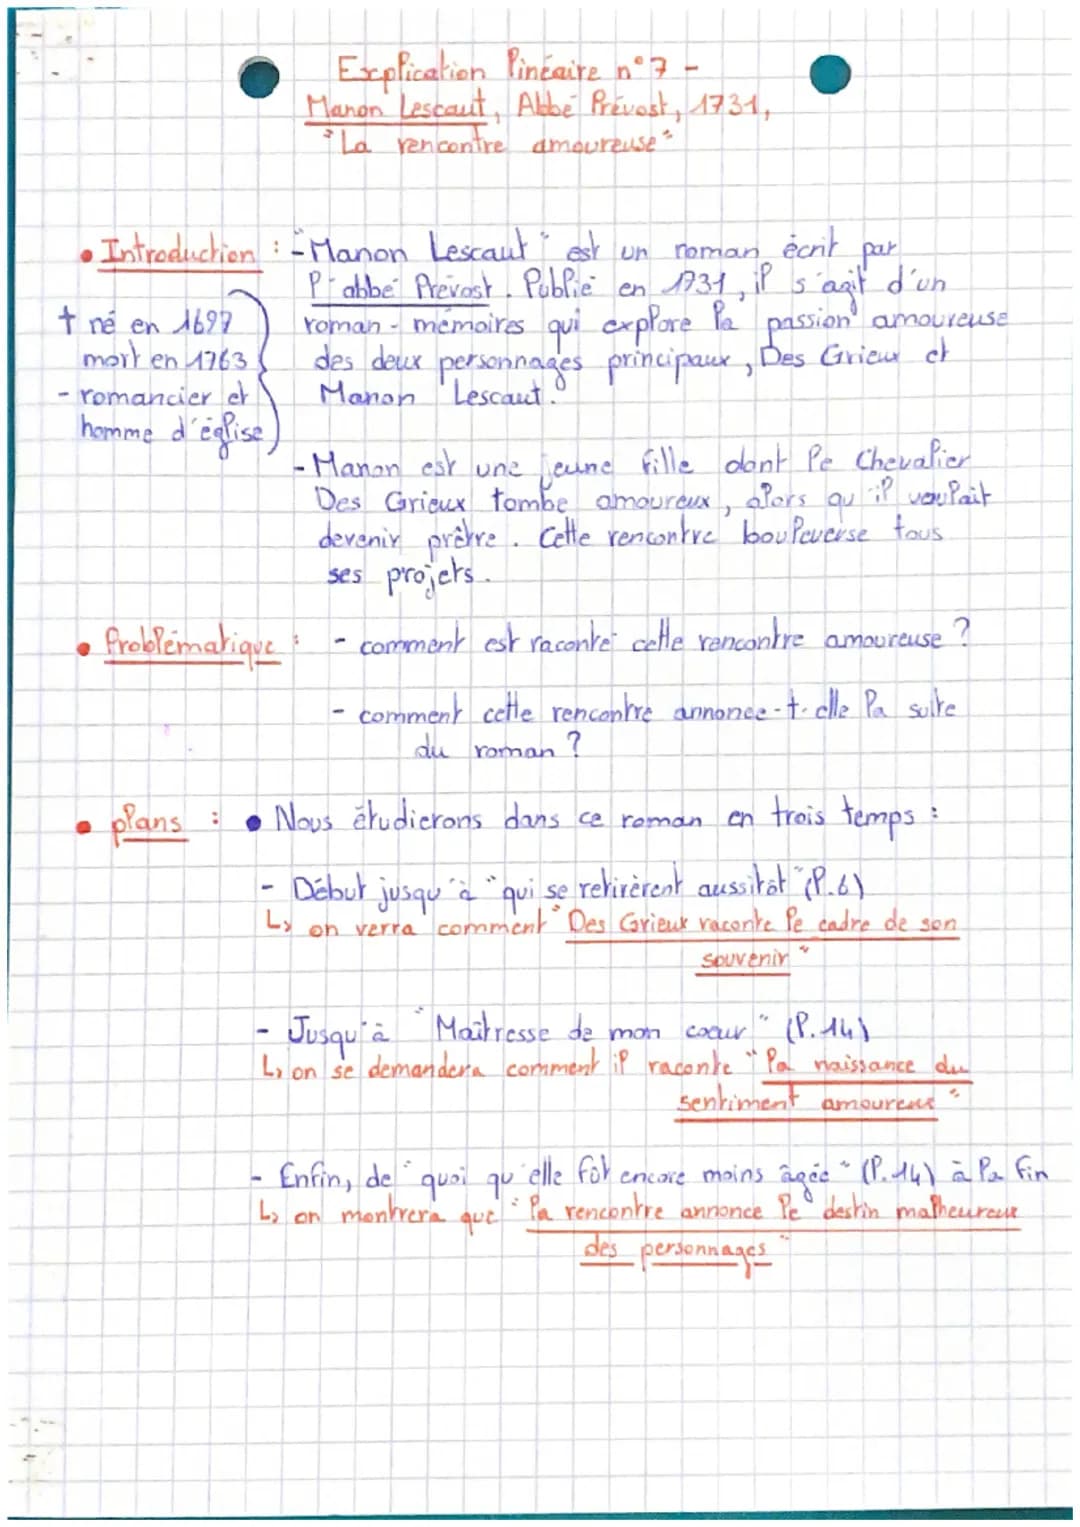 Explication linéaire n°7 -
Manon Lescaut, Abbé Prévost, 1731,
"La rencontre amoureuse"
• Introduction : - "Manon Lescaut" est un roman écrit par
l'abbé Prévost. Publié en 1731, il s'agit d'un
+ né en 1697
roman-mémoires qui explore la passion amoureuse
mort en 1763
des deux personnages principaux, Des Grieux et
- romancier et
Manon Lescaut.
homme d'église
- Manon est une jeune fille dont le Chevalier
Des Grieux tombe amoureux, alors qu'il voulait
devenir prêtre. Cette rencontre bouleverse tous
ses projets.
• Problématique : - comment est raconté cette rencontre amoureuse ?
- comment cette rencontre annonce-t-elle la suite
du roman ?
• plans : • Nous étudierons dans ce roman en trois temps :
- Début jusqu'à "qui se retirèrent aussitôt" (l.6)
↳ on verra comment "Des Grieux raconte le cadre de son
souvenir"
- Jusqu'à "Maîtresse de mon coeur" (l.14)
↳ on se demandera comment il raconte "la naissance du
sentiment amoureux"
- Enfin, de "quoi qu'elle fût encore moins âgée" (l.14) à la fin
↳ on montrera que "la rencontre annonce le destin malheureux
des personnages"